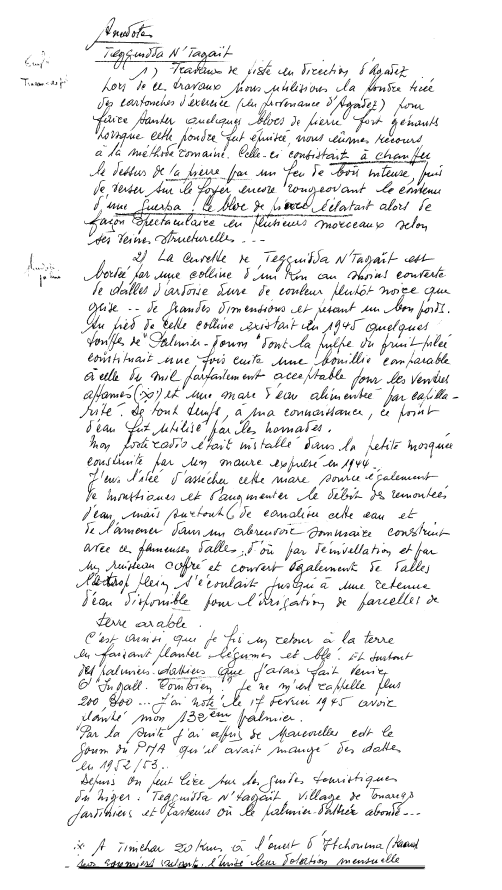 Anecdotes
Teggiudda N'Tagaït
1) Travaux de piste en direction d'Agadez
Lors de ces travaux nous utilisions la poudre tirée
des cartouches d'exercice (en provenance d'Agadez) pour
faire sauter quelques blocs de pierre fort gênants
Lorsque cette poudre fut épuisée, nous eûmes recours
à la méthode romaine. Celle-ci consistait à chauffer
le dessus de la pierre par un feu de bois intense, puis
de verser sur le foyer encore rougeoyant le contenu
d'une guerba! Le bloc de pierre éclatait alors de
façon spectaculaire en plusieurs morceaux selon
ses veines structurelles...
2) La cuvette de Teggiudda N'Tagaït est
bordée par une colline d'un km au moins couverte
de dalles d'ardoise dure de couleur plutôt noire que
grise... de grandes dimensions et pesant un bon poids.
Au pied de cette colline existait en 1945 quelques
touffes de "Palmier-doum" dont la pulpe du fruit pilée
constituait une fois cuite une bouillie comparable
à celle du mil parfaitement acceptable pour les ventres
affamés (x) et une mare d'eau alimentée par capilla-
rité. De tout temps, à ma connaissance, ce point
d'eau fut utilisé par les nomades.
Mon poste radio était installé dans la petite mosquée
construite par un maure expulsé en 1944.
J'eus l'idée d'assécher cette mare source également
de moustiques et d'augmenter le débit des remontées
d'eau, mais surtout de canaliser cette eau et
de l'amener dans un abreuvoir sommaire construit
avec ces fameuses dalles, d'où par dénivellation et par
un ruisseau coffré et couvert également de dalles
le trop plein s'écoulait jusqu'à une retenue
d'eau disponible pour l'irrigation de parcelles de
terre arable.
C'est ainsi que je fis un retour à la terre
en faisant planter légumes et blé. Et surtout
des palmiers dattiers que j'avais fait venir
d'Ingall. Combien? Je ne m'en rappelle plus
200 300... J'ai noté le 17 février 1945 avoir
planté mon 132ème palmier.
Par la suite j'ai appris de Marcoulles est le
goum du PMA qu'il avait mangé des dattes
en 1952/53.
Depuis on peut lire sur les guides touristiques
du Niger: Teggiudda N'Tagaït, village de Touaregs
jardiniers et pasteurs où le palmier dattier abonde...
x A Timichar 20 kms à l'ouest d'Itchouma
leur dotation mensuelle